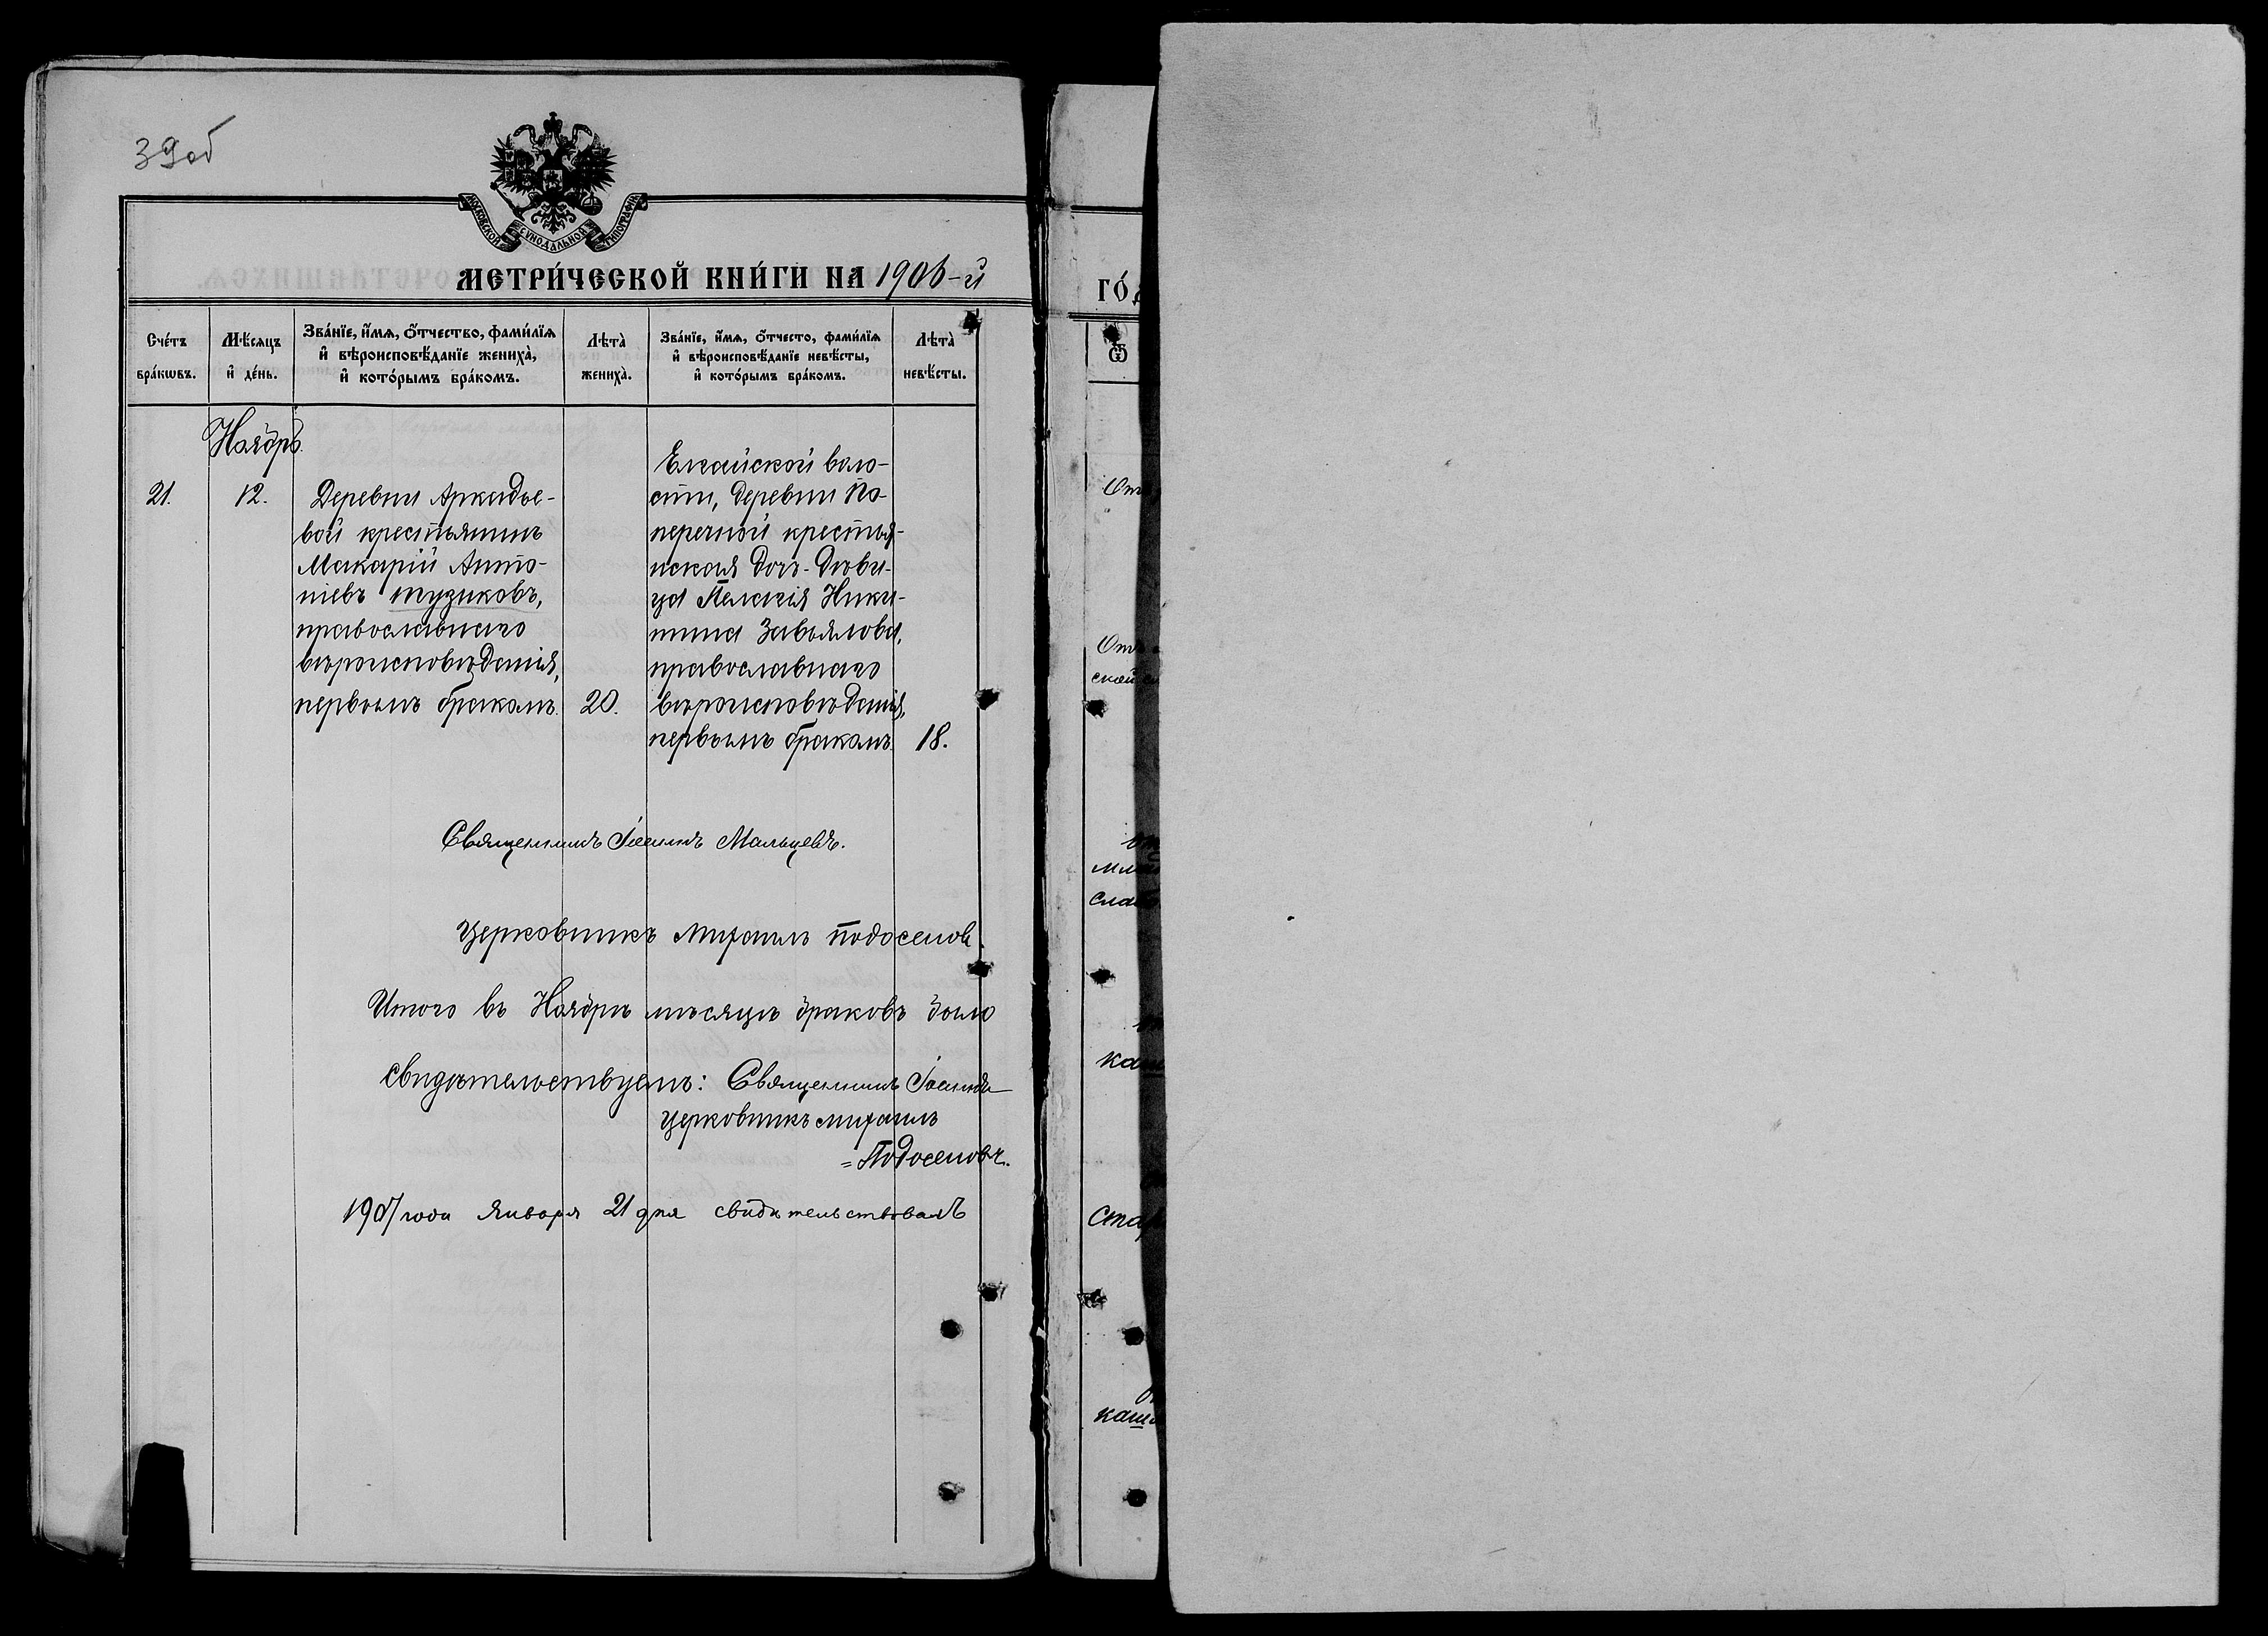 39об
МОСКОВСКОЙ СѴНОДАЛЬНОЙ ТИПОГРАФІИ
МЕТРИ́ЧЕСКОЙ КНИ́ГИ НА 1906-й
ГО́
Сче́тъ бра́кѡвъ.
Мѣ́сяцъ и҆ де́нь.
Зва́нїе, и҆́мѧ, ѻ҆́тчество, фами́лїѧ
и҆ вѣроисповѣ́данїе жениха̀,
и҆ кото́рымъ бра́комъ.
Лѣта̀ жениха̀.
Зва́нїе, и҆́мѧ, ѻ҆́тчесто, фами́лїѧ
и҆ вѣроисповѣ́данїе невѣ́сты,
и҆ кото́рымъ бра́комъ.
Лѣта̀ невѣ́сты.
Ноябрь.
21.
12.
Деревни Аркадье-
вой крестьянинъ
Макарій Анто-
ніевъ Тузиковъ,
православнаго
вѣроисповѣданія,
первымъ бракомъ.
20.
Елкайской воло-
сти, деревни По-
перечной крестья-
нская дочь-дѣви-
ца Пелагія Ники-
тина Завьялова,
православнаго
вѣроисповѣданія,
первымъ бракомъ.
18.
Священникъ Іоаннъ Мальцевъ.
Церковникъ Михаилъ Подосенов.
Итого въ Ноябрѣ мѣсяцѣ браковъ было
Свидѣтельствуемъ: Священникъ Іоаннъ
Церковникъ Михаилъ
=Подосеновъ.
1907 года Января 21 дня свидѣтельствовалъ